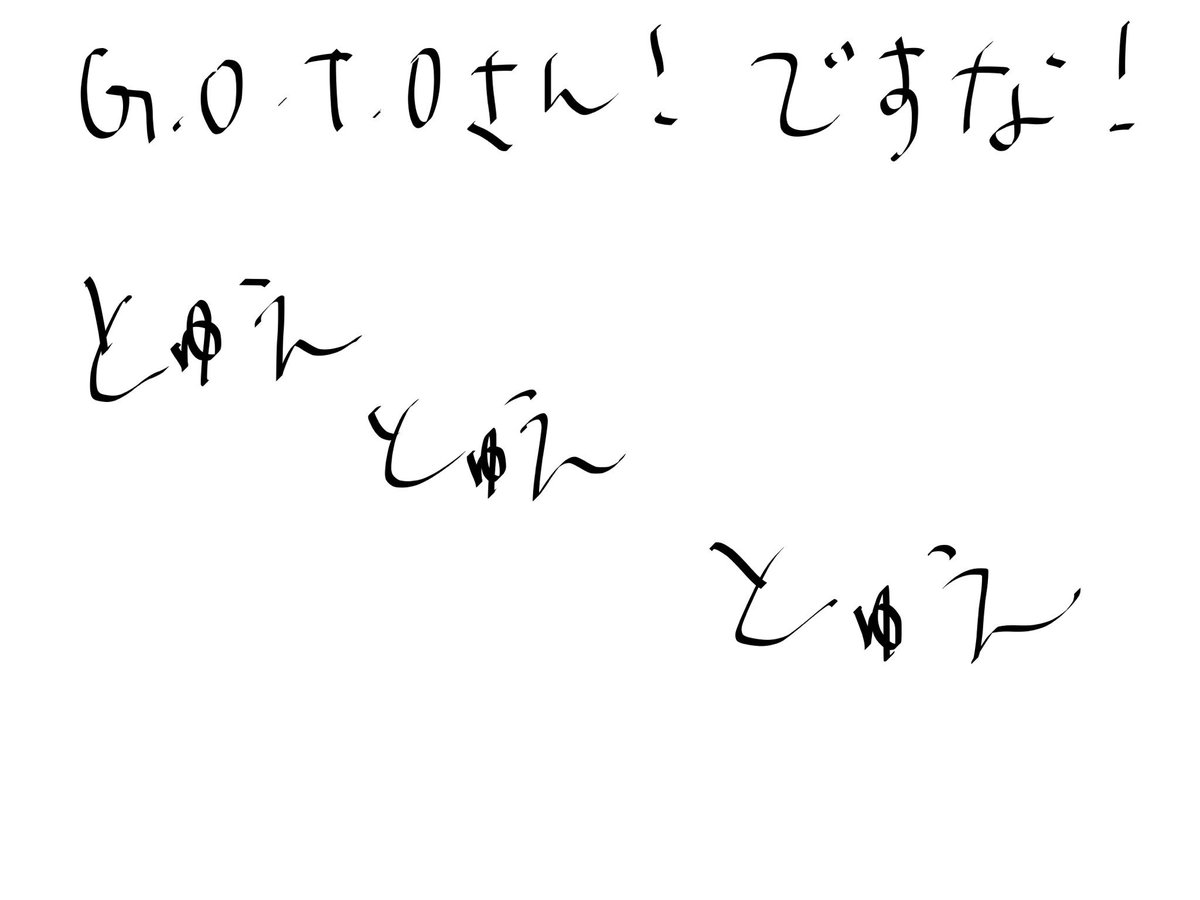 G.O.T.Oさん！ですな！
とゅえ
とゅえ
とゅえ